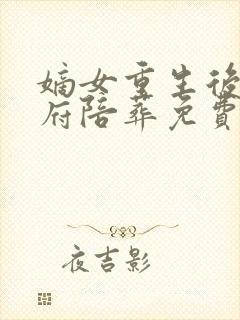 嫡女重生後
府陪葬免費
夜吉影